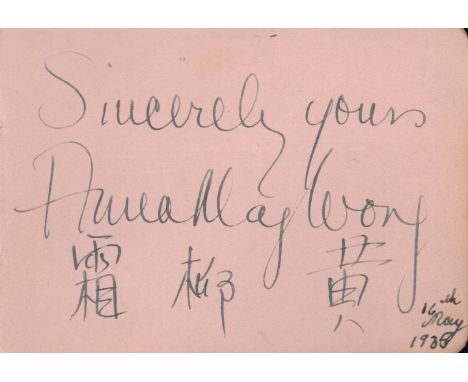 Sincerely yours
Anna May Wong
霜 柳 黄
16th
May
1938